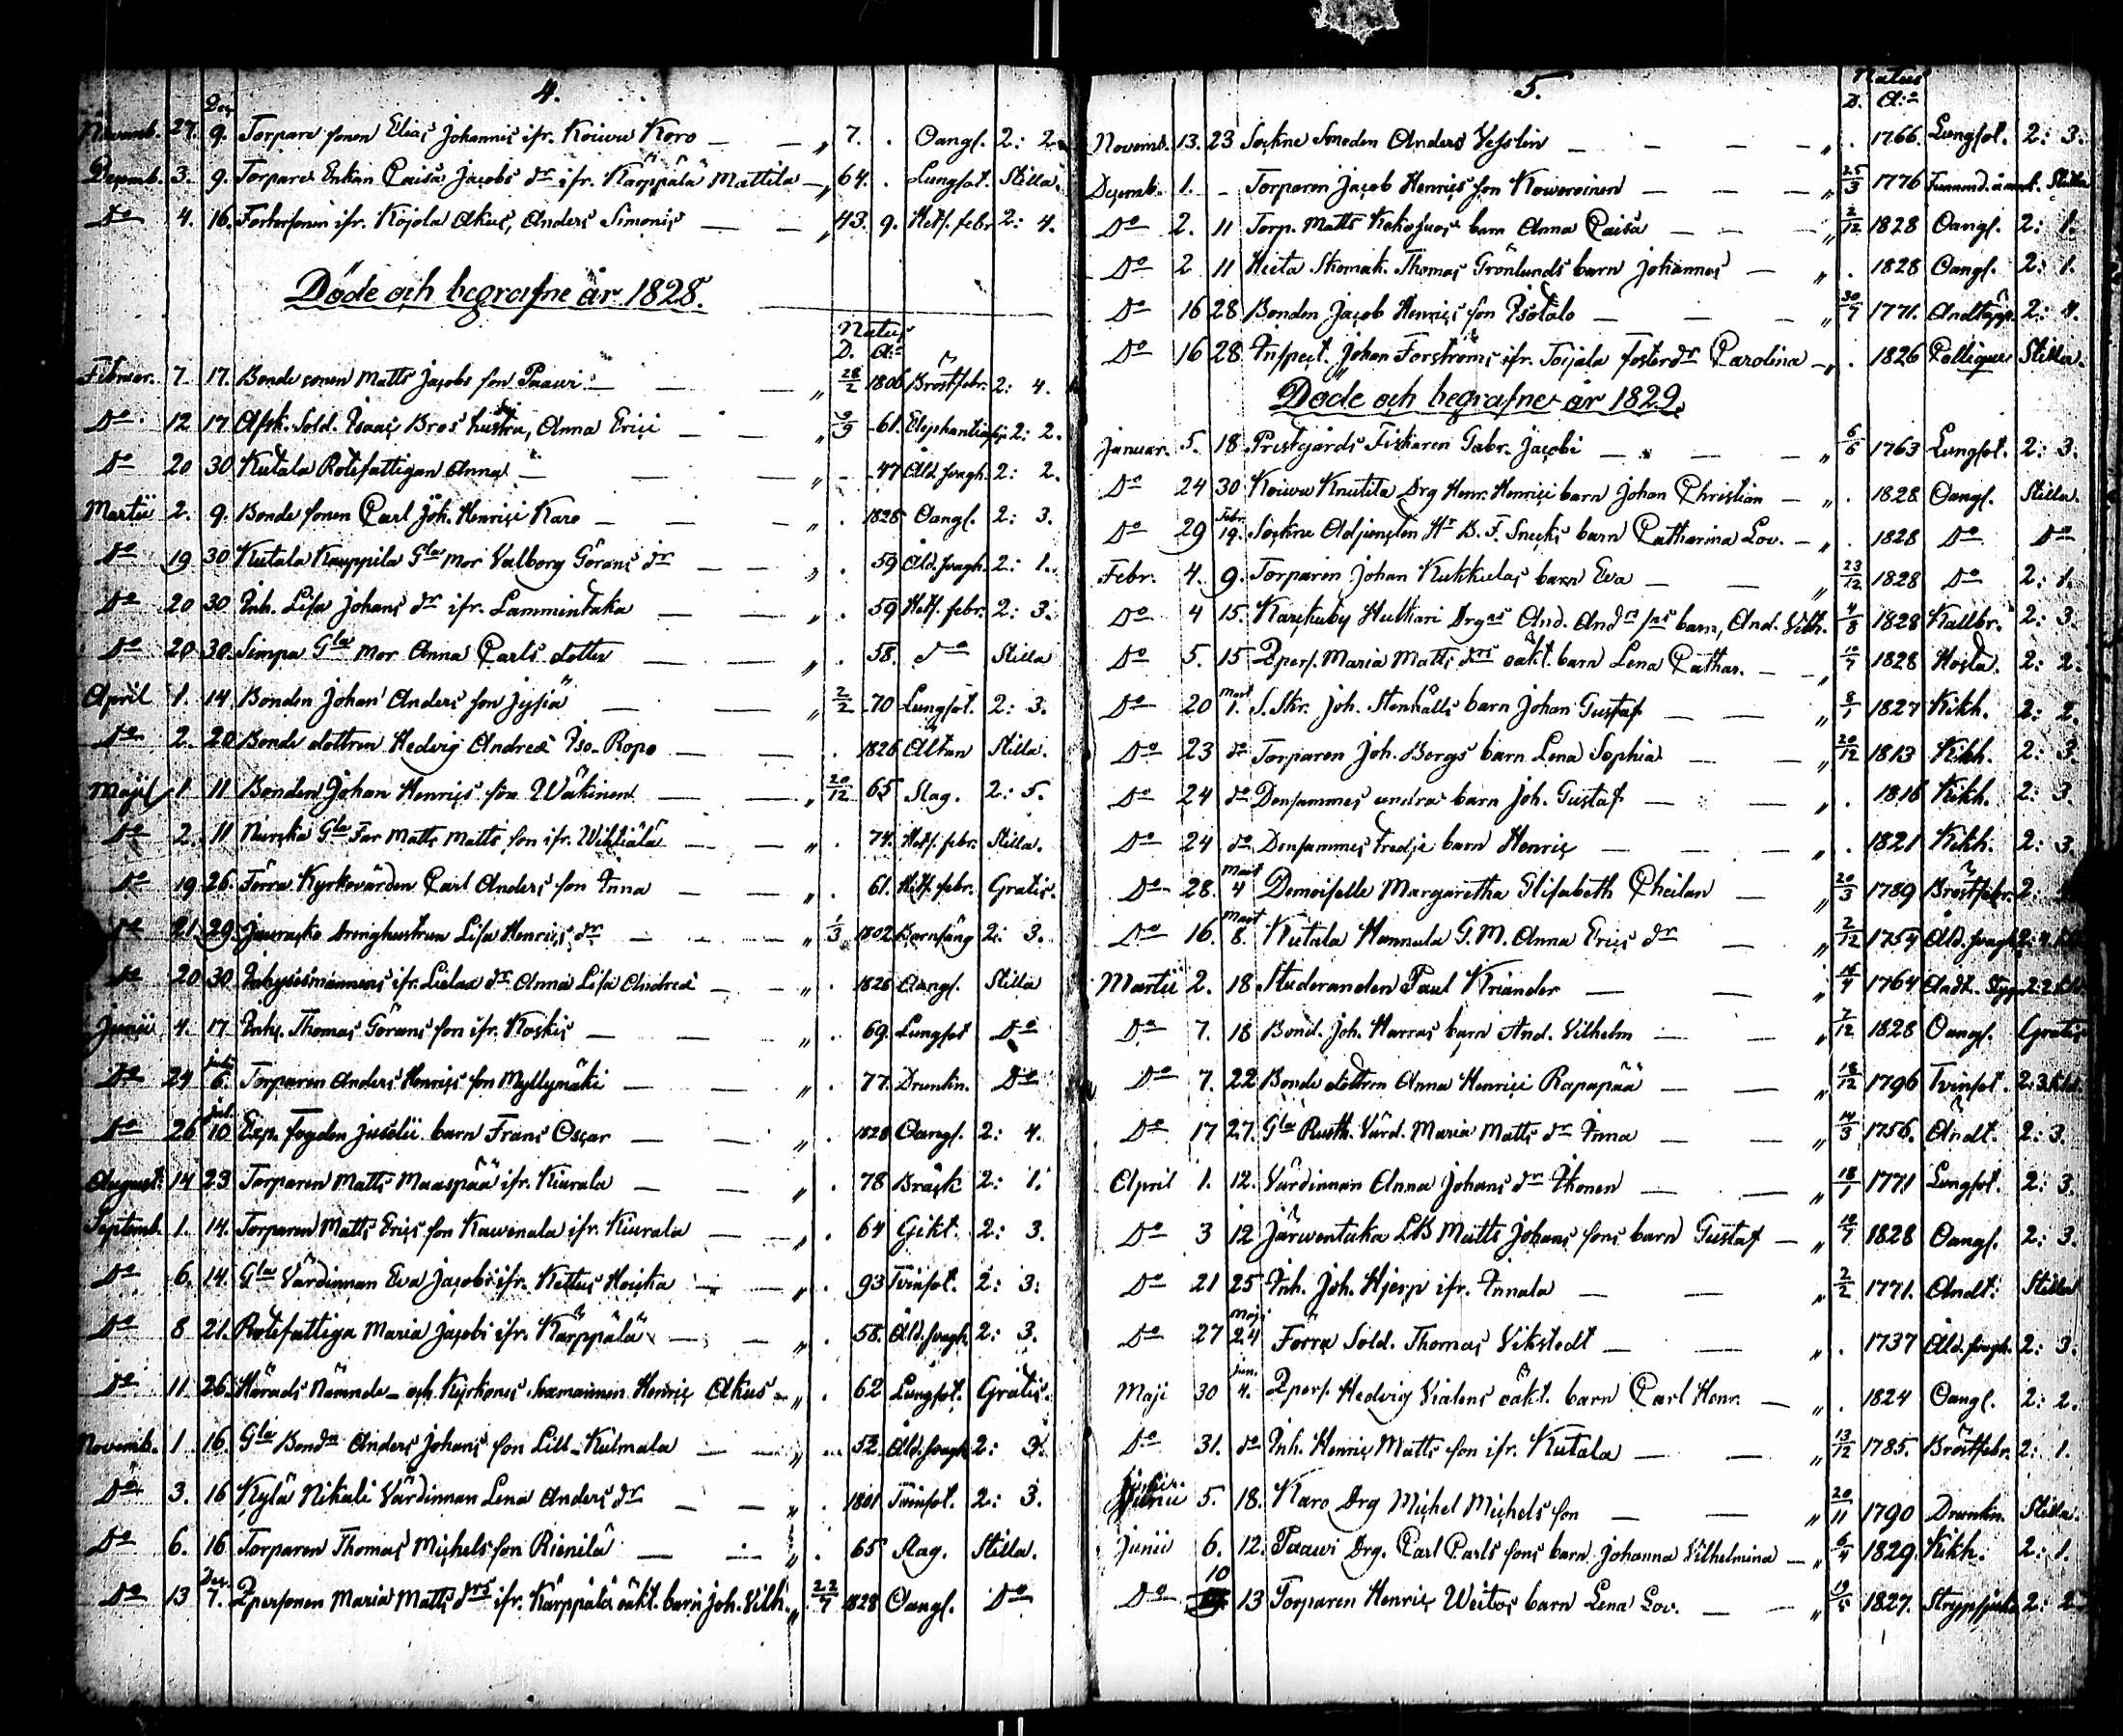 4.
Novemb. 27. Dec. 9. Torpare sonen Elias Johannis ifr. Koivu Koro — — „ 7. . Oangf. 2: 2.
Decemb. 3. 9. Torpare Enkan Caisa Jacobs dr ifr. Karppälä Mattila — „ 64. . Lungsot. Stilla.
Do 4. 16. Fostersonen ifr. Kojola Akus, Anders Simonis — — „ 43. 9. Hets. febr. 2: 4.
Döde och begrafne år 1828.
Natus
D. A:o
Februar. 7. 17. Bonde sonen Matts Jacobs son Paavi — — „ 28/2 1806 Bröstfebr. 2: 4.
Do 12 17. Afsk. Sold. Isaac Bros hustru, Anna Erici — — „ 9/9 -61. Elephantiasis 2: 2.
Do 20 30 Kutala Rotefattigan Anna — — — „ - -47 Åld. svagh. 2: 2.
Martii 2. 9. Bonde sonen Carl Joh. Henrici Karo — — — „ . 1828 Oangf. 2: 3.
Do 19 30 Kutala Kauppila Gla Mor Valborg Görans dr — — „ . 59 Åld. svagh. 2: 1.
Do 20 30. Inh. Lisa Johans dr ifr. Lammintaka — — „ . 59 Hets. febr. 2: 3.
Do 20 30. Simpa Gla Mor Anna Carls dotter — — „ . 58. do Stilla
April 1. 14. Bonden Johan Anders son Jysiä — — „ 2/2 -70 Lungsot. 2: 3.
Do 2. 20 Bonde dottren Hedvig Andreæ Iso-Ropo — — . 1826 Altan Stilla.
Maji 1. 11 Bonden Johan Henrics son Wäkinen — — „ 20/12 65 Slag. 2: 5.
Do 2. 11 Nurska Gla Far Matts Matts son ifr. Wihtiälä — — „ . 74. Hets. febr. Stilla.
Do 19 26. Förra Kyrkovärden Carl Anders son Inna — — „ . 61. Hets. febr. Gratis.
Do 21 29. drenghustrun Lisa Henrics dr — — „ 1/3 1802 Barnsäng 2: 3.
Do 20 30 Inhysesmannens ifr. dr Anna Lisa Andreæ — — „ . 1828 Oangf. Stilla
Junii 4. 17. Inhs. Thomas Görans son ifr. Koskis — — „ . 69. Lungsot Do
Do 24 Julii 6. Torparen Anders Henrics son Myllymäki — — „ . 77. Drunkn. Do
Do 26 Jul. 10 Exp. fogden Juselii barn Frans Oscar — — „ . 1828 Oangf. 2: 4.
August. 14 23 Torparen Matts Maaspää ifr. Kiurala — — „ . 78 Bråck 2: 1.
Septemb. 1. 14. Torparen Matts Erics son Kawenala ifr. Kiurala — — „ . 64 Gikt. 2: 3.
Do 6. 14. Gla Värdinnan Eva Jacobs ifr. Kettus Hoicka — — „ . 93 Tvinsot. 2: 3.
Do 8 21. Rotefattiga Maria Jacobi ifr. Karppälä — — „ . 58. Åld. svagh. 2: 3.
Do 11. 26. Härads Nämnde- och Kyrkones Sexmannen Henric Akus — „ . 62 Lungsot. Gratis.
Novemb. 1 16. Gla Bondn Anders Johans son Lill-Kulmala — — „ 52. Åld. svagh. 2: 3.
Do 3. 16 Kylä Nikula Värdinnan Lena Anders dr — — „ . 1801 Tvinsot. 2: 3.
Do 6. 16 Torparen Thomas Michels son Rienilä — — „ . 65 Slag. Stilla.
Do 13 Dec. 7. Qpersonen Maria Matts drs ifr. Karppälä oäkt. barn Joh. Vilh. „ 22/7 1828 Oangf. Do
5.
Natus
D. A:o
Novemb. 13. 23 Sockne Smeden Anders Vesslin — — — „ . 1766. Lungsot. 2: 3.
Decemb. 1. - Torparen Jacob Henrics son Koweroinen — — „ 25/3 1776 Stilla
Do 2. 11 Torp. Matts barn Anna Caisa — — „ 2/12 1828 Oangf. 2: 1.
Do 2 11 Skomak. Thomas Grönlunds barn Johannes — „ . 1828 Oangf. 2: 1.
Do 16 28 Bonden Jacob Henrics son Isotalo — — „ 30/7 1771. Andtäppa 2: 4.
Do 16 28. Inspect. Johan Forströms ifr. Toijala fosterdr Carolina — „ . 1826 Collique Stilla.
Döde och begrafne år 1829.
Januar. 5. 18. Prestgårds Fiskaren Gabr. Jacobi — — „ 6/6 1763 Lungsot. 2: 3.
Do 24 30 Koivu Knutila Drg Henr. Henrici barn Johan Christian — „ . 1828. Oangf. Stilla.
Do 29 Febr. 19. Sockne Adjuncten Hr B. F. Snecks barn Catharina Lov. — „ . 1828 Do Do
Febr. 4. 9. Torparen Johan Kukkulas barn Eva — — „ 23/12 1828 Do 2: 1.
Do 4 15. Karckuby Hulkari Drgns And. Andrs sns barn, And. Vilh. 4/8 1828 Kallbr. 2: 3.
Do 5. 15 Qpers. Maria Matts drs oäkt. barn Lena Cathar. — „ 10/7 1828 Hosta. 2: 2.
Do 20 Mart 1. S. Skr. Joh. Stenhälls barn Johan Gustaf — — „ 8/1 1827 Kikh. 2: 2.
Do 23 do Torparen Joh. Bergs barn Lena Sophia — — „ 20/12 1813 Kikh. 2: 3.
Do 24 do Densammes andra barn Joh. Gustaf — — „ . 1816 Kikh. 2: 3.
Do 24 do Densammes tredje barn Henric — — „ . 1821 Kikh. 2: 3.
Do 28. Mart 4 Demoiselle Margaretha Elisabeth Cheilan „ 20/3 1789 Bröstfebr. 2:
Do 16. Mart 8. Kutala Hannula G. M. Anna Erics dr — „ 2/12 1754 Åld. svagh. 2: 4.
Martii 2. 18. Studeranden Paul Kriander — — „ 1764 Andt. 2: 2.
Do 7. 18 Bond. Joh. Harras barn And. Vilhelm — — „ 7/12 1828 Oangf. Gratis
Do 7. 22 Bonde dottren Anna Henrici Rapapää — — „ 18/12 1796 Tvinsot. 2: 3.
Do 17 27. Gla Rusth. Värd. Maria Matts dr Inna — — „ 14/3 1756. Andt. 2: 3.
April 1. 12. Värdinnan Anna Johans dr Ikonen — — „ 18/1 1771 Lungsot. 2: 3.
Do 3 12 Järwentaka LB Matts Johans sons barn Gustaf — „ 10/7 1828 Oangf. 2: 3.
Do 21 25 Inh. Joh. Hjerp ifr. Innala — — „ 2/2 1771. Andt: Stilla
Do 27 Maji 24 Förra Sold. Thomas Vikstedt — — „ . 1737 Åld. svagh. 2: 3.
Maji 30 Jun. 4. Qpers. Hedvig Vialens oäkt. barn Carl Henr. — „ . 1824 Oangf. 2: 2.
Do 31. do Inh. Henric Matts son ifr. Kutala — — „ 13/12 1785. Bröstfebr. 2: 1.
Junii 5. 18. Karo Drg Michel Michels son — — „ 20/11 1790 Drunkn. Stilla.
Junii 6. 12. Paawi Drg. Carl Carls sons barn Johanna Vilhelmina — „ 6/4 1829. Kikh. 2: 1.
Do 10 13 Torparen Henric Weitos barn Lena Lov. — — „ 19/5 1827. Strypsjuka 2: 2